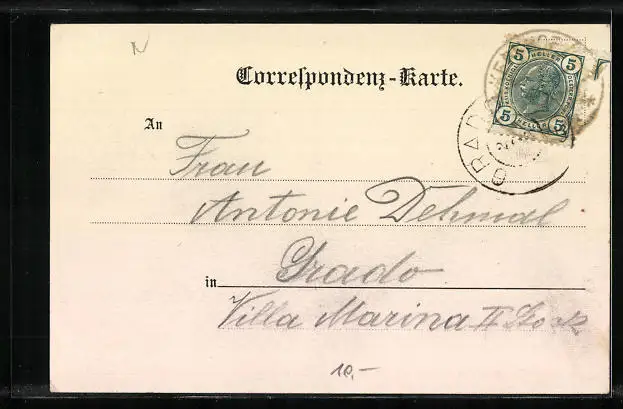 Correspondenz-Karte.
5 HELLER 5
5 HELLER 5
GRADO
An
Frau
Antonie Dehmal
in Grado
Villa Marina II Stock
10,-